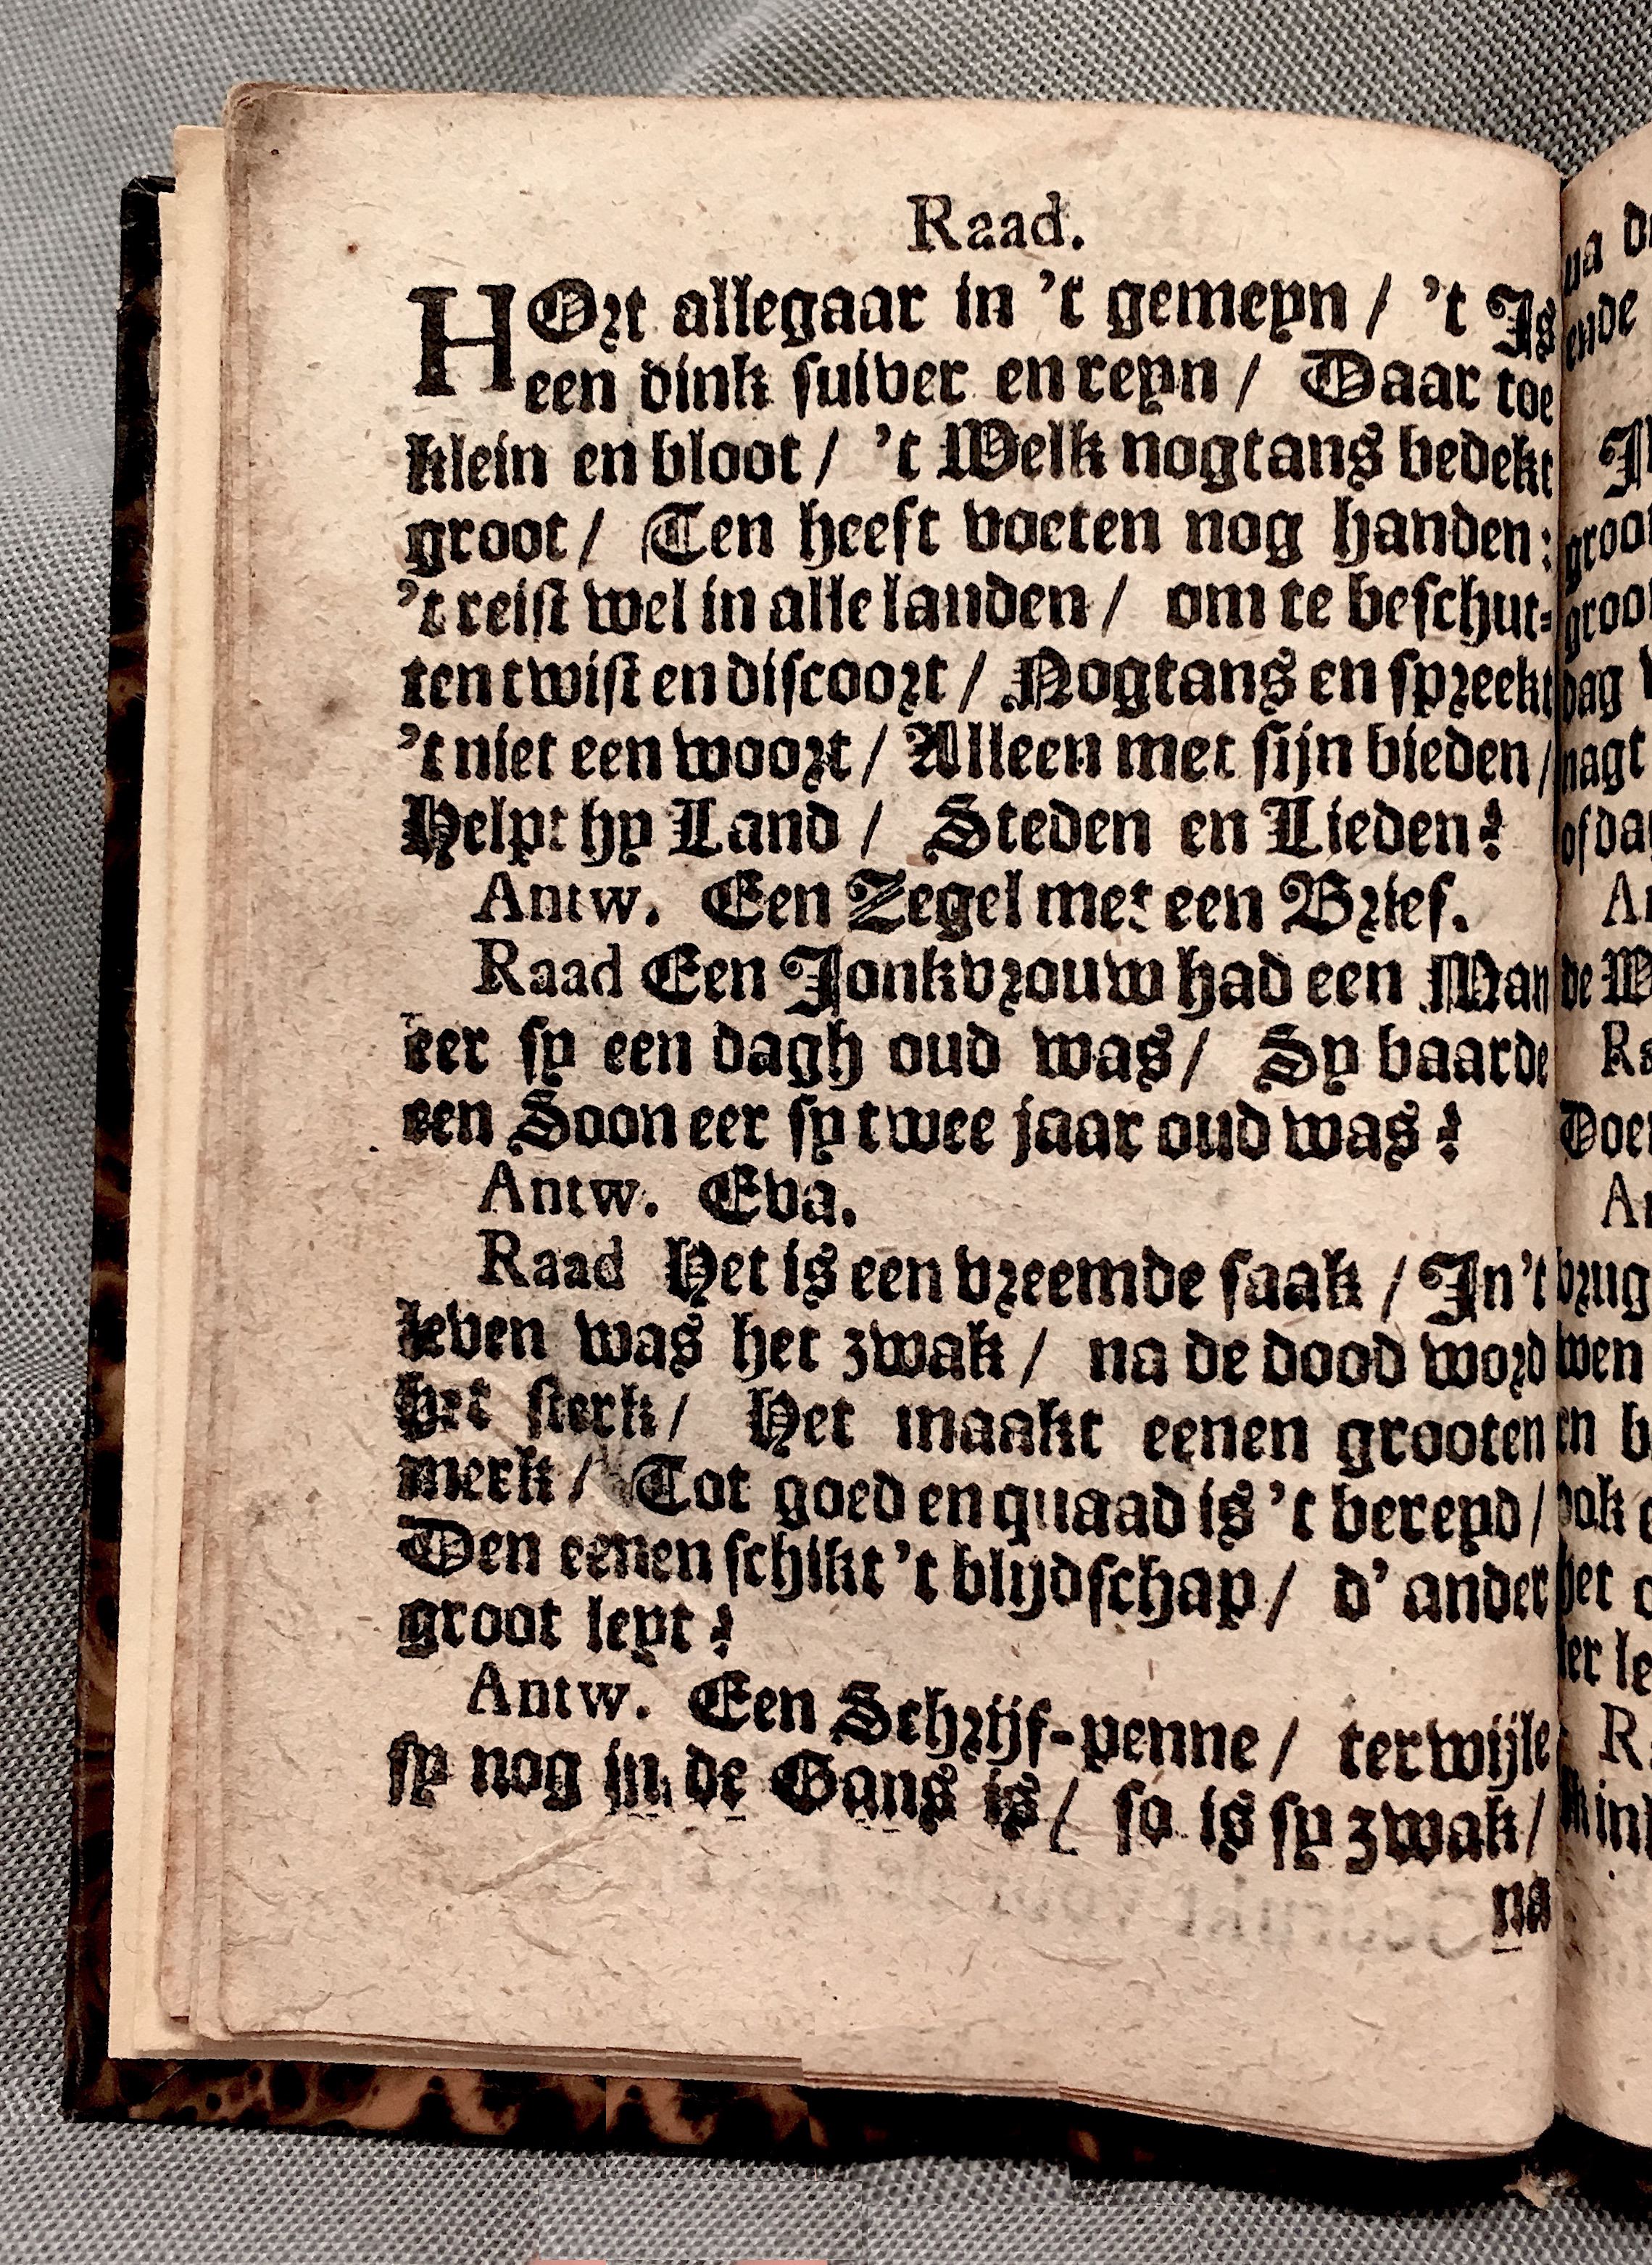 Raad.
HOrt allegaar in 't gemeyn / 't Is
een dink suiver en reyn / Daar toe
klein en bloot / 't Welk nogtans bedekt
groot / Ten heeft voeten nog handen:
't reist wel in alle landen / om te beschut-
ten twist en discoort / Nogtans en spreekt
't niet een woort / Alleen met sijn bieden /
Helpt hy Land / Steden en Lieden?
Antw. Een Zegel met een Brief.
Raad Een Jonkvrouw had een Man
eer sy een dagh oud was / Sy baarde
een Soon eer sy twee jaar oud was?
Antw. Eva.
Raad Het is een vreemde saak / In 't
leven was het zwak / na de dood word
het sterk / Het maakt eenen grooten
merk / Tot goed en quaad is 't bereyd /
Den eenen schikt 't blijdschap / d' ander
groot leyt?
Antw. Een Schrijf-penne / terwijle
sy nog in de Gans is / so is sy zwak /
na